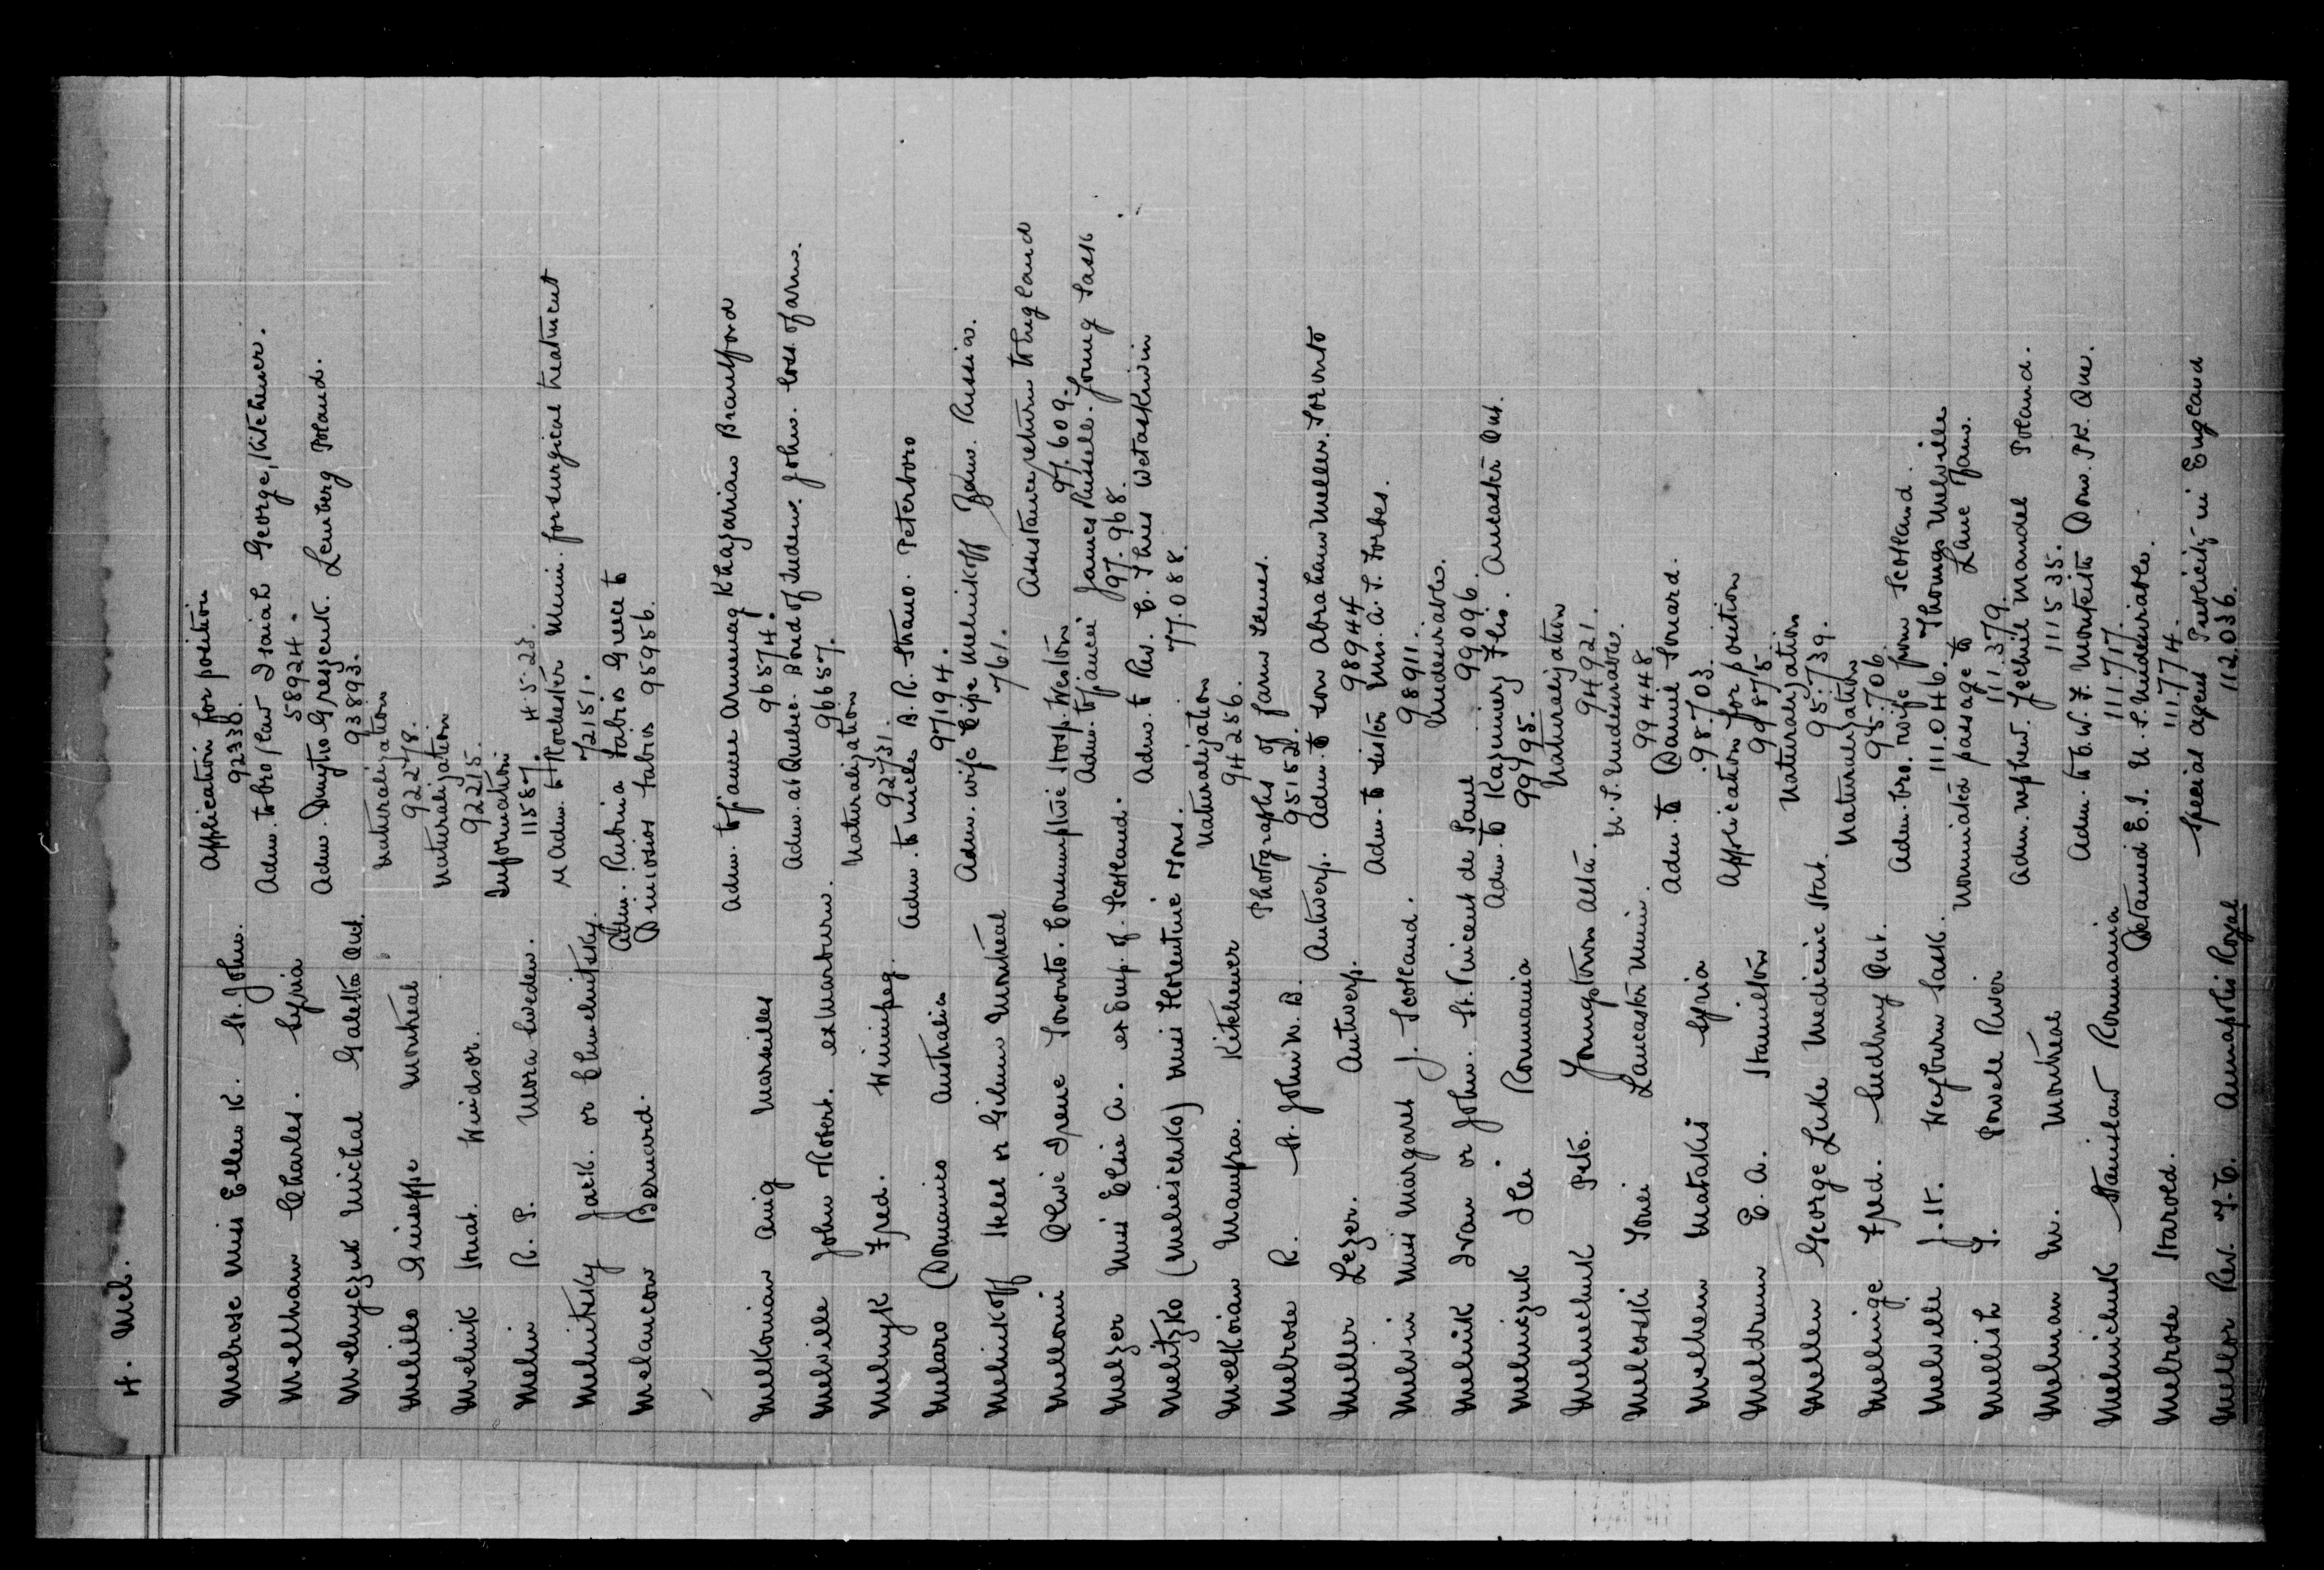 4. Mel.
Melrose Miss Ellen K. St. John. Application for position
92338.
Mellham Charles. Syria Adm. to bro/law Isaiah George, Kitchener.
58924.
Melnyczuk Michal Galetta Ont. Adm. Dmytro Greszcuk. Lemberg Poland.
93893.
Melillo Guiseppe Montreal Naturalization
92278.
Melnik Hnat. Windsor. Naturalization
92215.
Melin R. P. Mora Sweden. Information
11587. 4-5-23.
Melnitsky Jack. or Chmelnitsky. Adm. to Rochester Minn. for surgical treatment
72151.
Melancon Bernard. Adm. Rubria Fabios Greece to
Dniosios Fabios 95956.
Melkonian Anig Marseilles Adm. to fiancee Armenag Khazarian Brantford
96574.
Melville John Robert. ex Marburn. Adm. at Quebec. Bond of Indem. John. Coss. of arms.
96657.
Melnyk Fred. Winnipeg. Naturalization
92731.
Melaro (Domenico Australia Adm. to uncle A. R. Strano. Peterboro
97194.
Melnikoff Helel or Gilmu Montreal Adm. wife Cipe Melnikoff Russia.
761.
Melloni Olive Irene Toronto. Consumptive Hosp. Weston Assistance return to England
97.609.
Melzer Miss Elsie A. ex Emp. of. Scotland. Adm. to fiancei James Russell. Young Sask
97.968.
Melitzko (Melieschko) Miss Florentine Tons. Adm. to Rev. E. Thus Wetaskiwin
77.088.
Melkoian Mampra. Kitchener Naturalization
94256.
Melrose R. St. John N. B. Photographs of Farm Scenes.
95152.
Meller Lezer. Antwerp. Antwerp. Adm. to son Abraham Meller. Toronto
98944
Melvin Miss Margaret J. Scotland. Adm. to sister Mrs. A. S. Forbes.
98911.
Melnik Ivan or John. St. Vincent de Paul Undesirable.
99096.
Melniczuk Ilei Roumania Adm. to Kazmierz Flis. Ancaster Ont.
99195.
Melnechuk Pete. Youngstown Alta. Naturalization
94921.
Melcoski Tonei Lancaster Minn. U.S. Undesirable.
99448
Melhem Matakis Syria Adm. to Daniel Souard.
98703.
Meldrum E. A. Hamilton Application for position
99875
Mellen George Luke Medicine Hat. Naturalization
95739.
Mellinge Fred. Sudbury Ont. Naturalization
95706
Melville J. H. Weyburn Sask. Adm. bro. wife from Scotland.
111.046. Thomas Melville
Mellish T. Powell River Nominated passage to Lane Fam.
111.379.
Melman M. Montreal Adm. nephew. Jechiel Mandel Poland.
111535.
Melnichuk Stanislaw Roumania Adm. to W. F. Monteith Dom. Pk. Que.
111.717.
Melrose Harold. Detained E.I. U.S. Undesirable.
111.774.
Mellor Rev. T. C. Annapolis Royal Special agent Publicity in England
112.036.